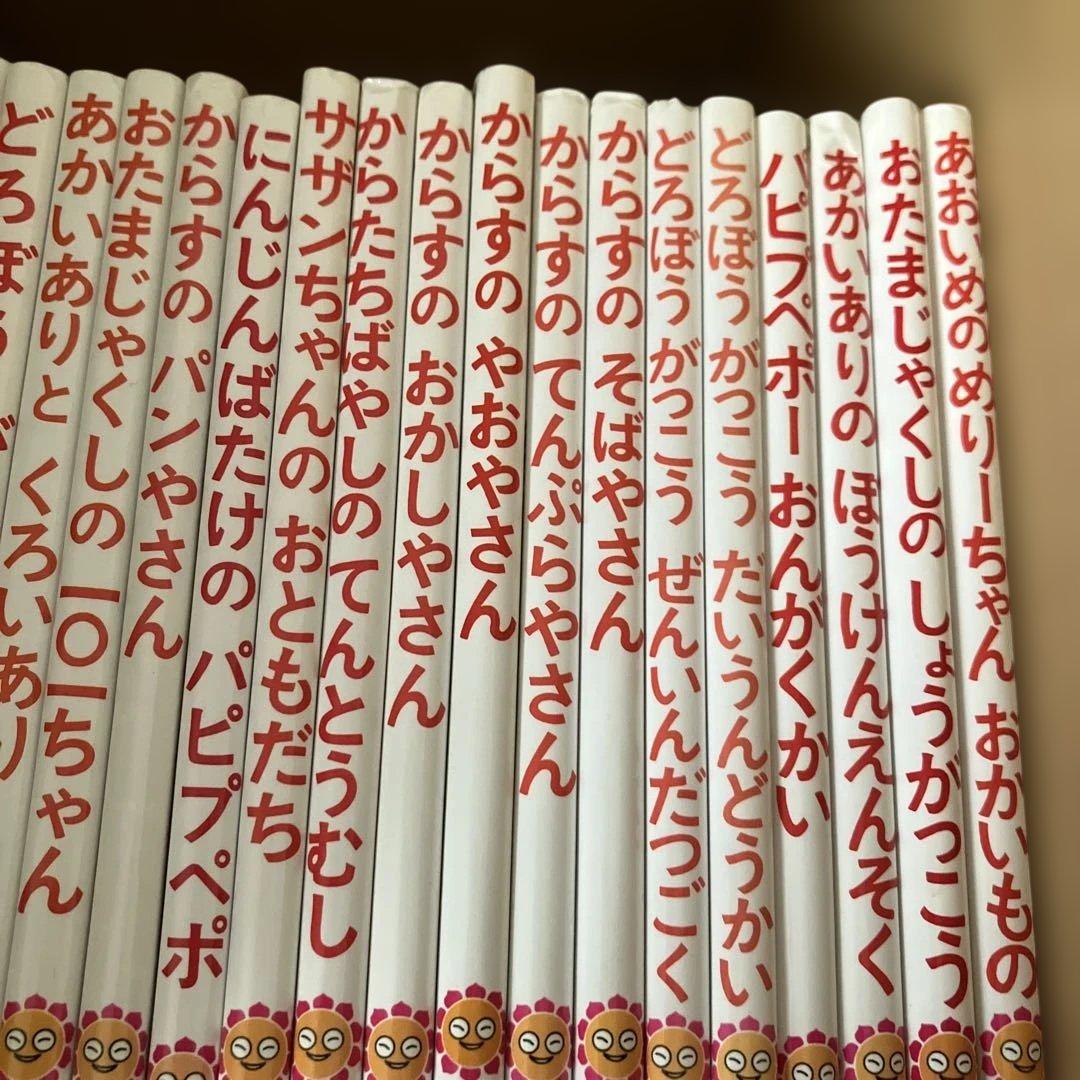 あおいめのめりーちゃん おかいもの
おたまじゃくしの しょうがっこう
あかいありの ぼうけんえんそく
パピプペポー おんがくかい
どろぼうがっこう だいうんどうかい
どろぼうがっこう ぜんいんだつごく
からすの そばやさん
からすの てんぷらやさん
からすの やおやさん
からすの おかしやさん
からたちばやしの てんとうむし
サザンちゃんの おともだち
にんじんばたけの パピプペポ
からすの パンやさん
おたまじゃくしの 一〇一ちゃん
あかいありと くろいあり
どろぼう が